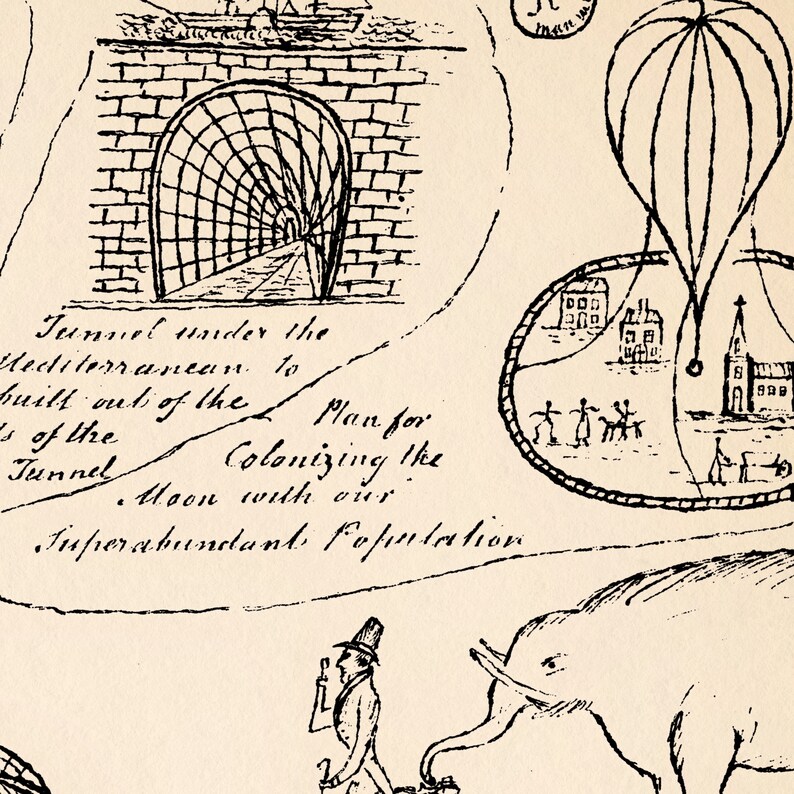 Tunnel under the
Mediterranean to
built out of the
of the
Tunnel
Plan for
Colonizing the
Moon with our
Superabundant Population